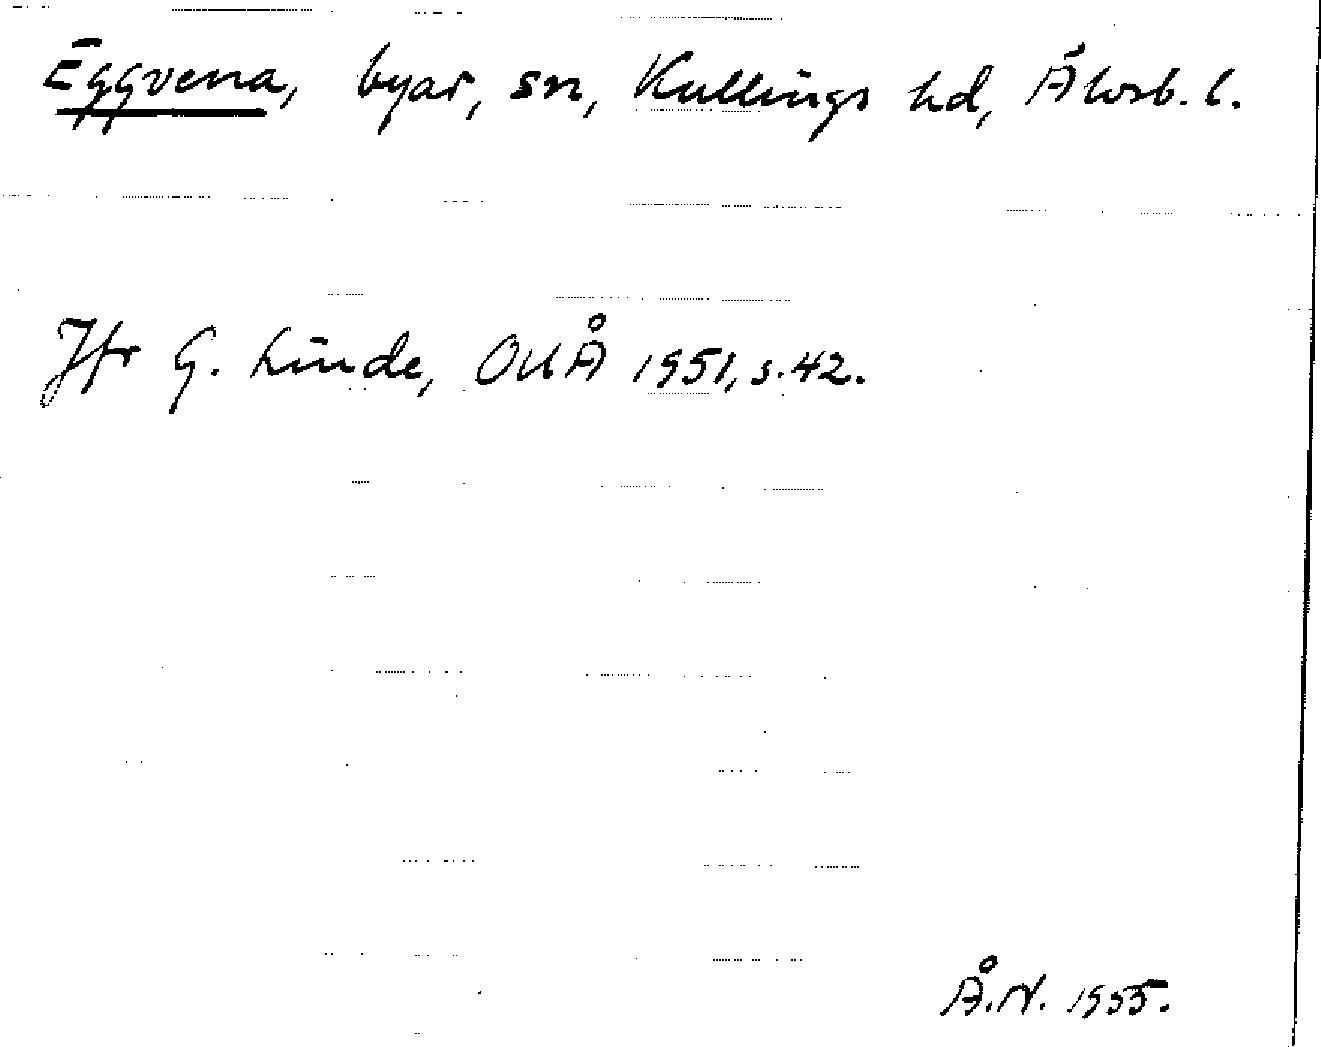 Eggvena, byar, sn, Kullings hd, Älvsb. l.
Jfr G. Linde, OUÅ 1951, s. 42.
Å.N. 1955.